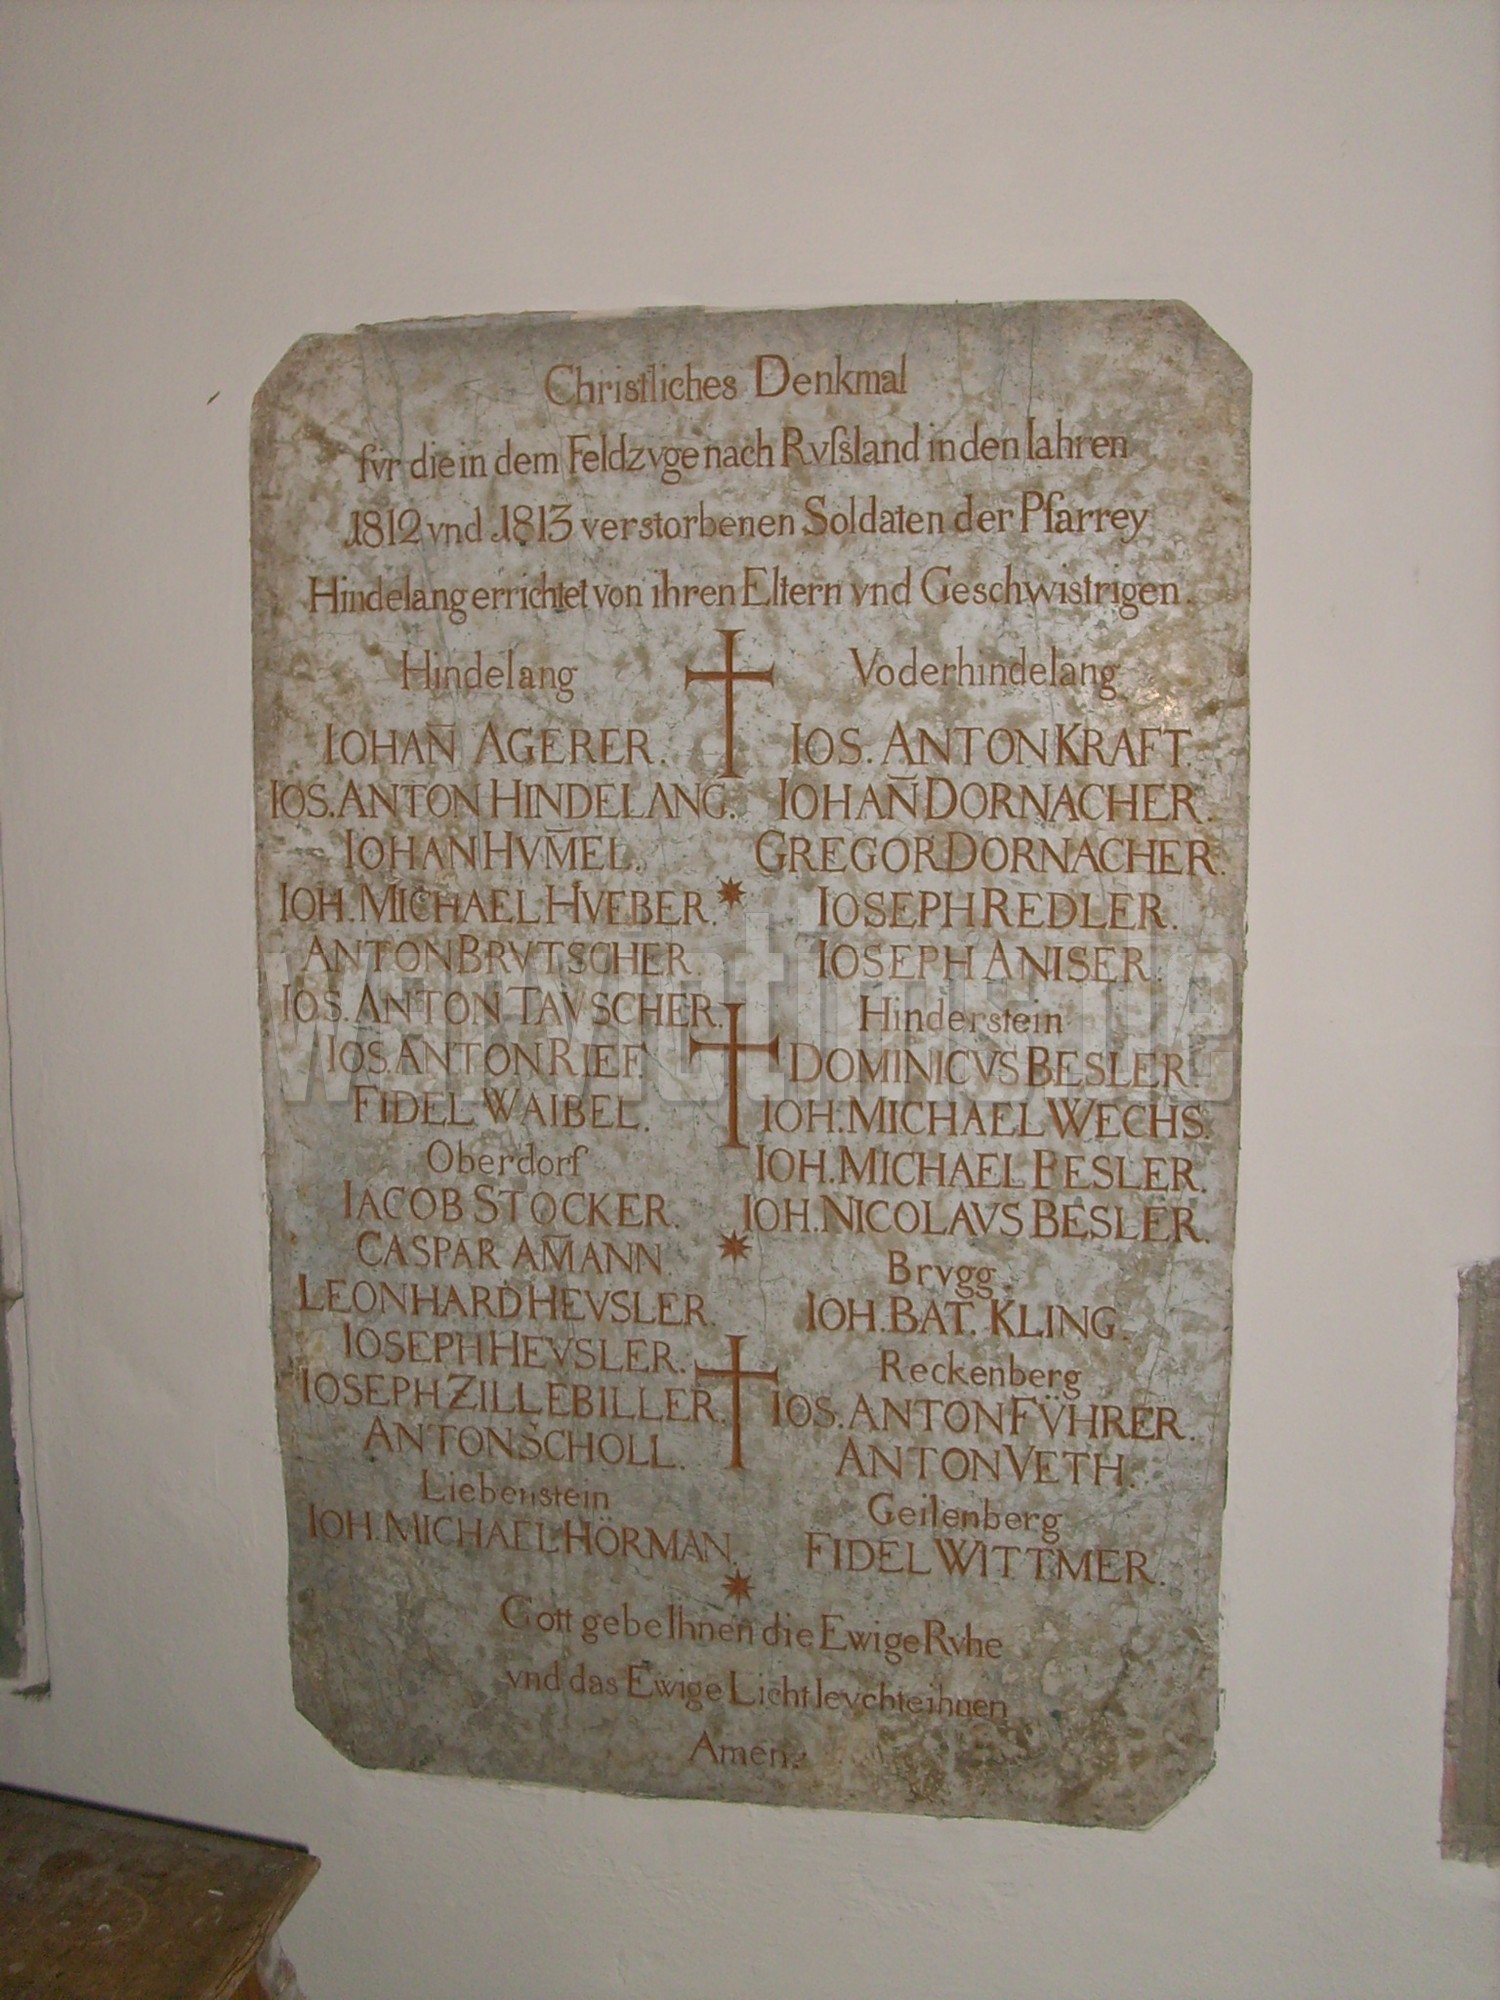 Christliches Denkmal
fvr die in dem Feldzvge nach Rvſsland in den Iahren
1812 vnd 1813 verstorbenen Soldaten der Pfarrey
Hindelang errichtet von ihren Eltern vnd Geschwistrigen.
Hindelang
IOHAN̄ AGERER.
IOS. ANTON HINDELANG.
IOHAN HVM̄EL.
IOH. MICHAEL HVEBER.
ANTON BRVTSCHER.
IOS. ANTON TAVSCHER.
IOS. ANTON RIEF.
FIDEL WAIBEL.
Oberdorf
IACOB STOCKER.
CASPAR AM̄ANN.
LEONHARD HEVSLER.
IOSEPH HEVSLER.
IOSEPH ZILLEBILLER.
ANTON SCHOLL.
Liebenstein
IOH. MICHAEL HÖRMAN.
Voderhindelang
IOS. ANTON KRAFT.
IOHAN̄ DORNACHER.
GREGOR DORNACHER.
IOSEPH REDLER.
IOSEPH ANISER.
Hinderstein
DOMINICVS BESLER.
IOH. MICHAEL WECHS.
IOH. MICHAEL BESLER.
IOH. NICOLAVS BESLER.
Brvgg
IOH. BAT. KLING.
Reckenberg
IOS. ANTON FV̈HRER.
ANTON VETH.
Geilenberg
FIDEL WITTMER.
Gott gebe Ihnen die Ewige Rvhe
vnd das Ewige Licht levchte ihnen
Amen.
warvictims.de